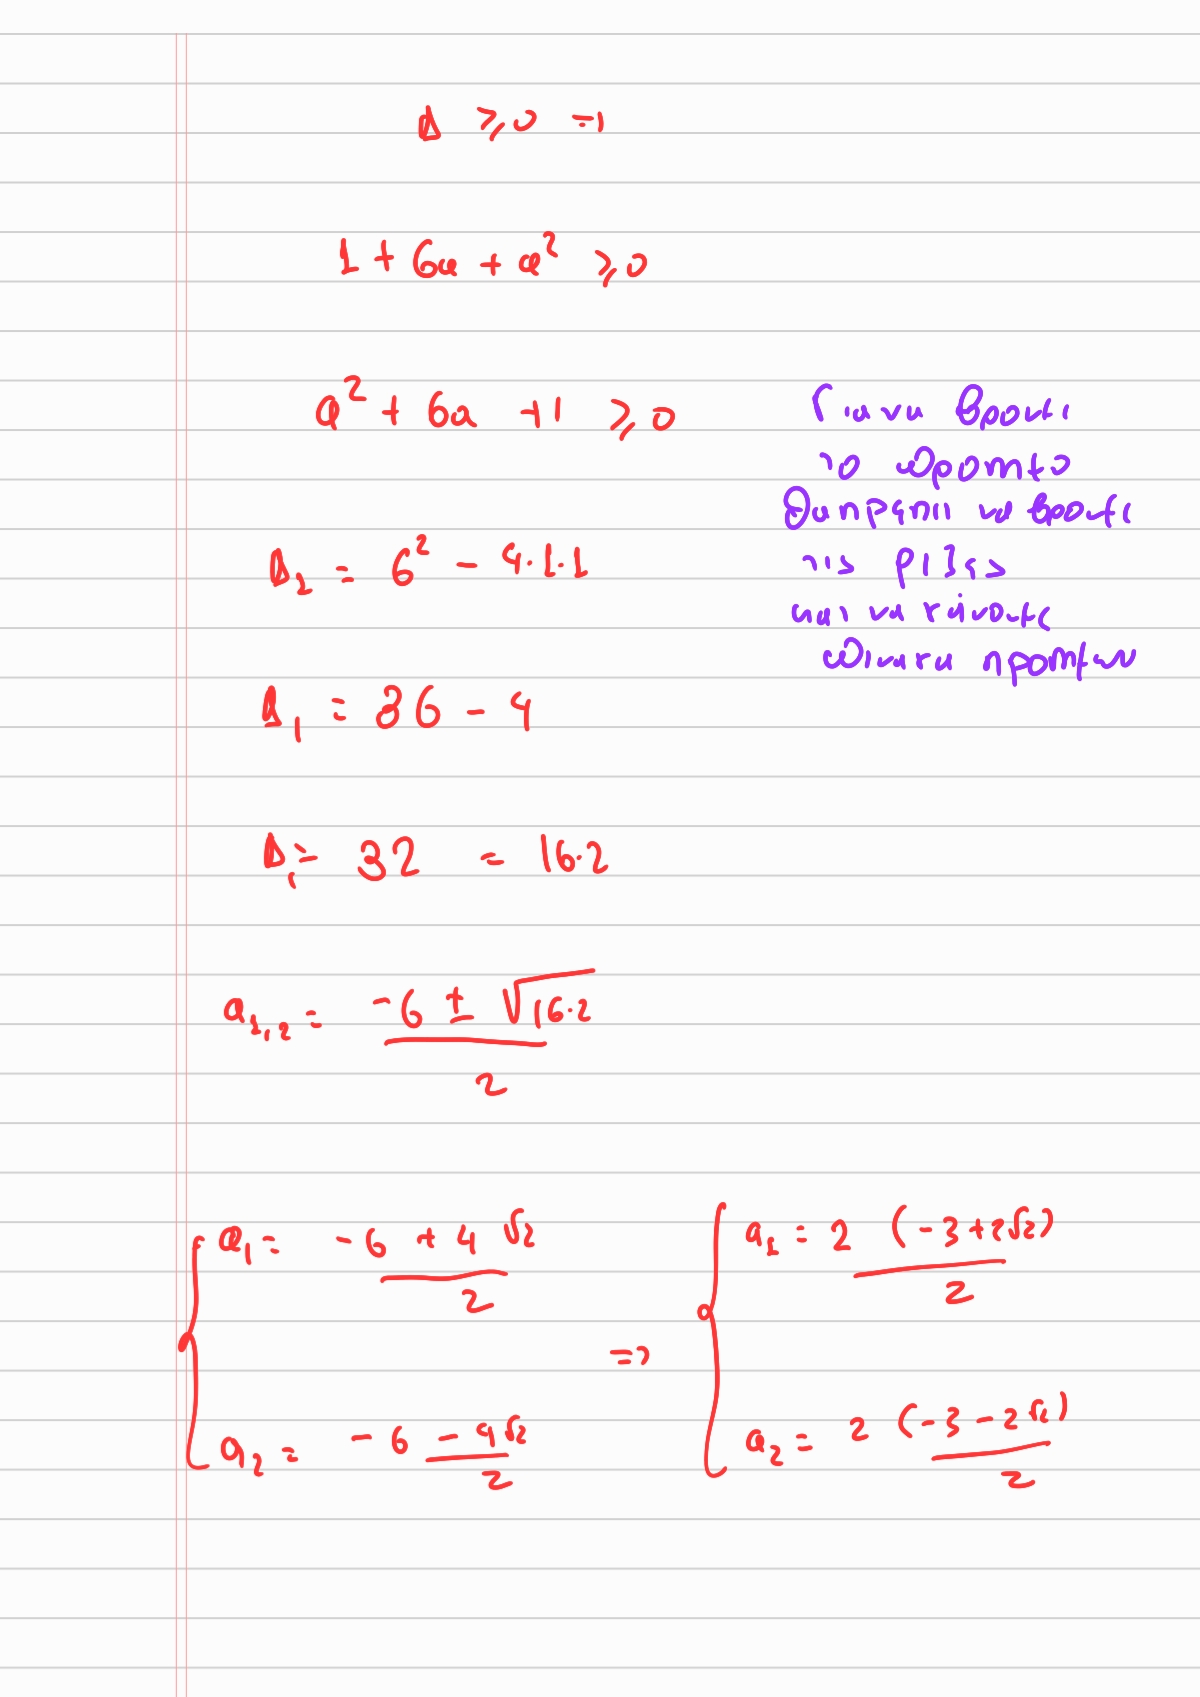 Δ ≥ 0 ⇒
1 + 6α + α² ≥ 0
α² + 6α + 1 ≥ 0
Για να βρούμε
το πρόσημο
θα πρέπει να βρούμε
τις ρίζες
και να κάνουμε
πίνακα προσήμων
Δ₂ = 6² - 4·1·1
Δ₁ = 36 - 4
Δ₁ = 32 = 16·2
α₁,₂ = (-6 ± √(16·2)) / 2
α₁ = (-6 + 4√2) / 2
α₂ = (-6 - 4√2) / 2
⇒
α₁ = 2 (-3 + 2√2) / 2
α₂ = 2 (-3 - 2√2) / 2